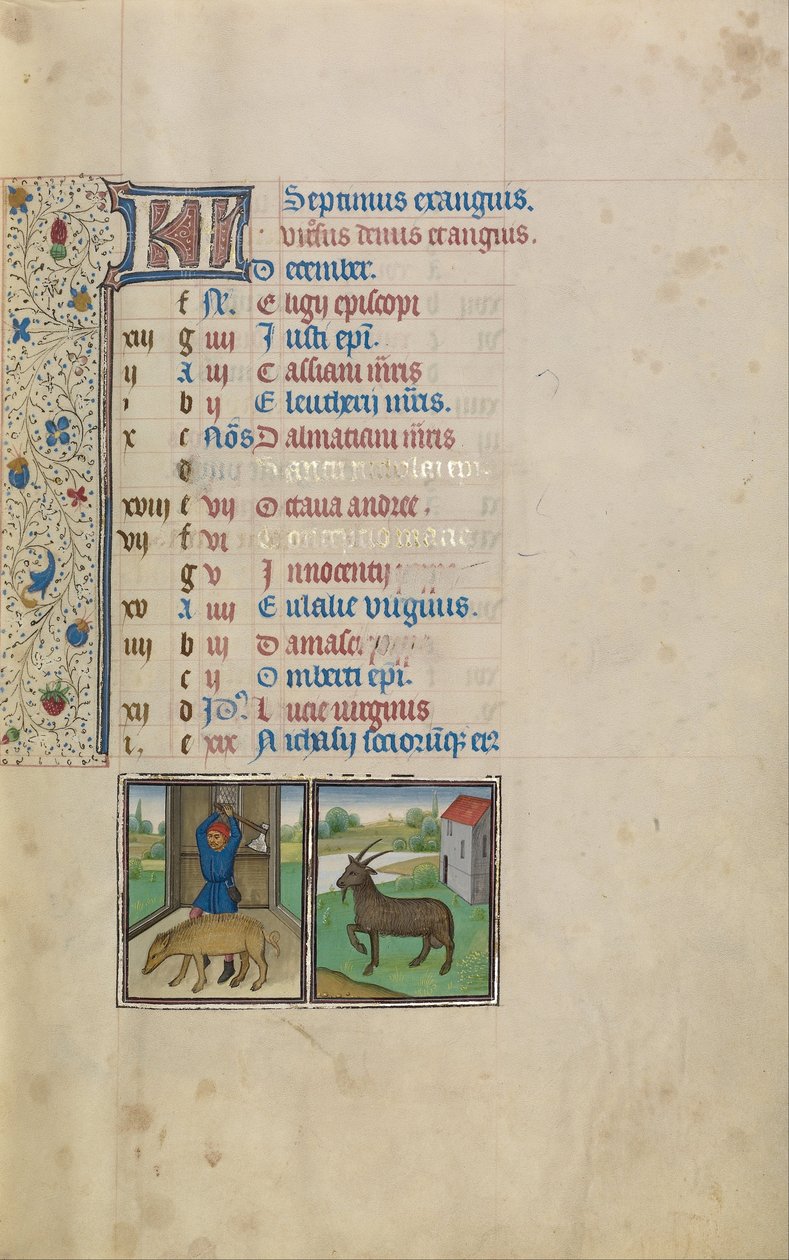 Kl Septimus exanguis.
virosus denus et anguis.
December.
f No. Eligij episcopi
xiii g iiij Justi epi.
ij A iij Cassiani mris
i b ij Eleutherij mris.
x c Nos Dalmatiani mris
d Sancti nicholai epi.
xviij e vij Octaua andree.
vij f vi Conceptio marie
g v Innocentij pape
xv A iiij Eulalie virginis.
iiij b iij Damasci pape
c ij Omberti epi.
xij d Jdus Lucie uirginis
i. e xix Nichasij sociorumque eius